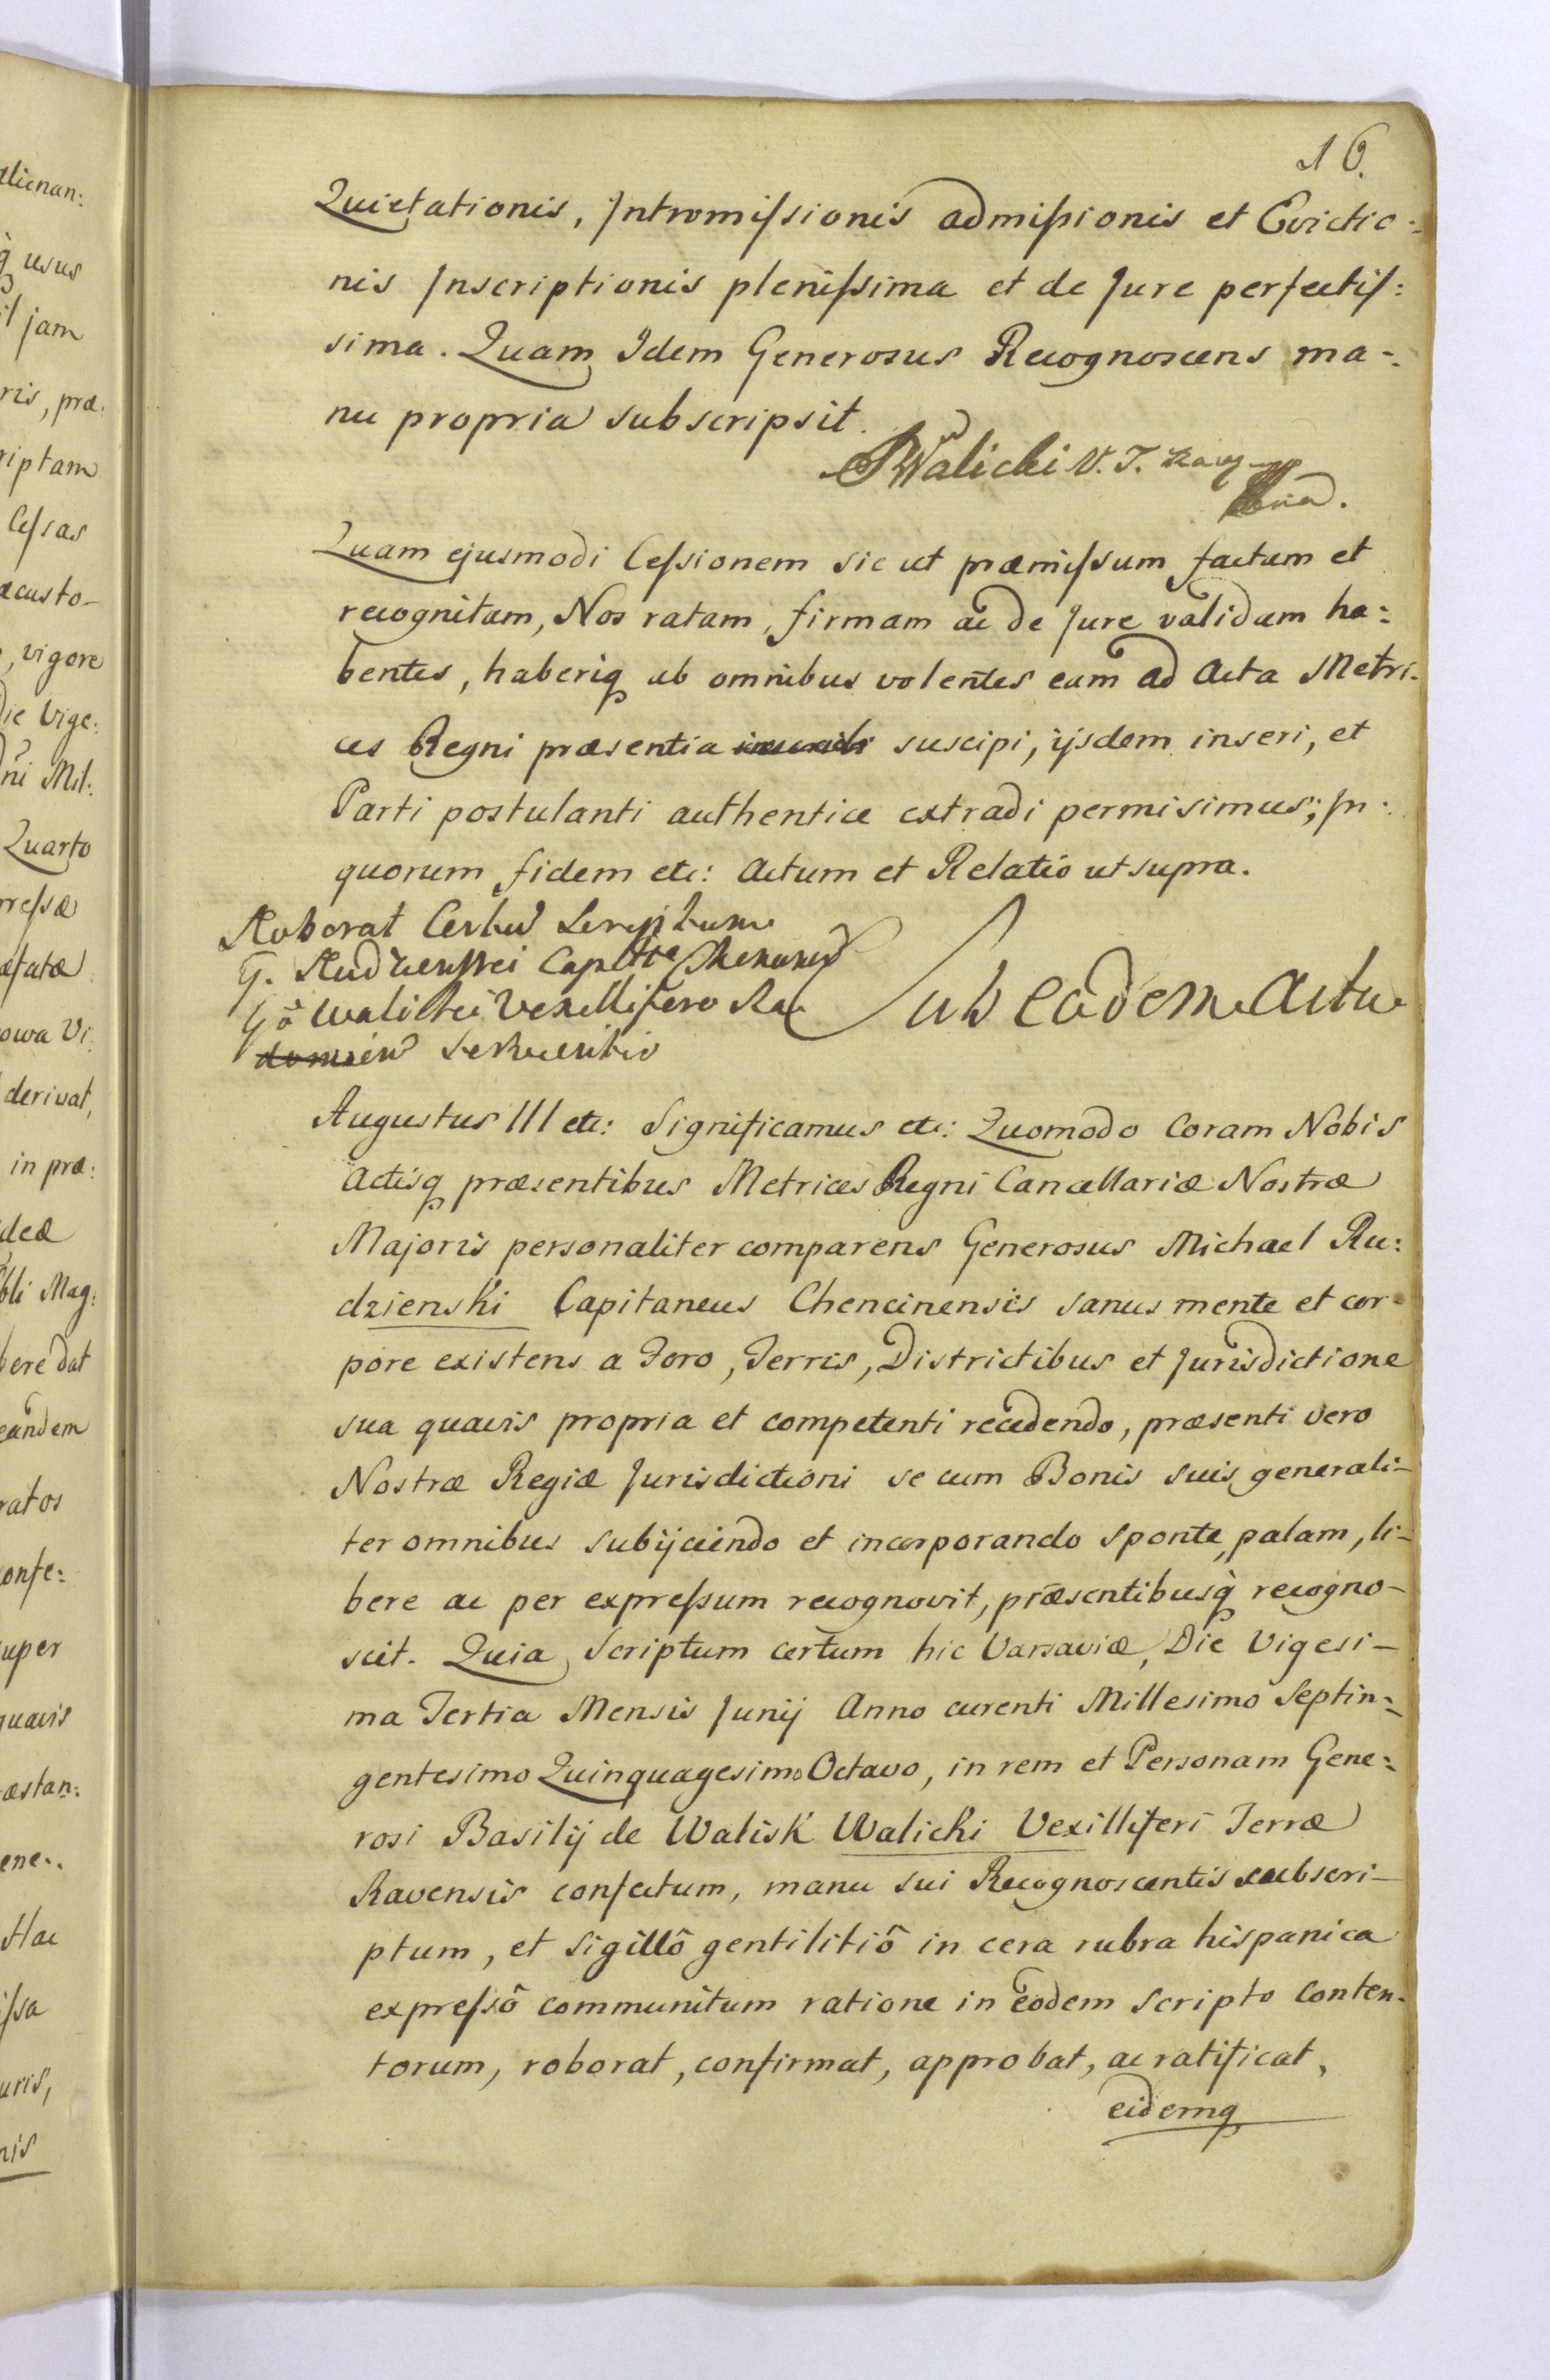 16.
Quietationis, Intromissionis admissionis et Evictio:
nis Inscriptionis plenissima et de Jure perfectis:
sima. Quam Idem Generosus Recognoscens ma-
nu propria subscripsit.
Walicki V. T. Raw
Quam ejusmodi Cessionem sic ut præmissum factam et
recognitam, Nos ratam, firmam ac de Jure validam ha:
bentes, haberiq ab omnibus volentes eam ad Acta Metri-
ces Regni præsentia suscipi, ijsdem inseri, et
Parti postulanti authentice extradi permisimus; In
quorum fidem etc: Actum et Relatio ut supra.
Roborat Certum Scriptum
G. Rudzienski Captte
Gō Walicki Vexillifero Ra
Sub eadem Actu
Augustus III etc: Significamus etc: Quomodo Coram Nobis
Actisq præsentibus Metrices Regni Cancellariæ Nostræ
Majoris personaliter comparens Generosus Michael Ru:
dzienski Capitaneus Chencinensis sanus mente et cor-
pore existens a Foro, Terris, Districtibus et Jurisdictione
sua quavis propria et competenti recedendo, præsenti vero
Nostræ Regiæ Jurisdictioni se cum Bonis suis generali-
ter omnibus subijciendo et incorporando sponte, palam, li-
bere ac per expressum recognovit, præsentibusq recogno-
scit. Quia Scriptum certum hic Varsaviæ, Die Vigesi-
ma Tertia Mensis Junij Anno curenti Millesimo Septin-
gentesimo Quinquagesimo Octavo, in rem et Personam Gene:
rosi Basilij de Walisk Walicki Vexilliferi Terræ
Ravensis confectum, manu sui Recognoscentis subscri-
ptum, et sigillô gentilitiô in cera rubra hispanica
expressô communitum ratione in eodem scripto Conten-
torum, roborat, confirmat, approbat, ac ratificat,
eidemq
alienan:
q usus
jam
ris, præ:
riptam
Cessas
acusto-
, vigore
die Vige:
Dni Mil:
Quarto
ressæ
efatæ
owa Vi
derivat,
in præ:
deæ
bli Mag:
bere dat
eandem
ratos
onfe:
uper
quavis
æstan:
ene:
Hac
issa
uris,
nis